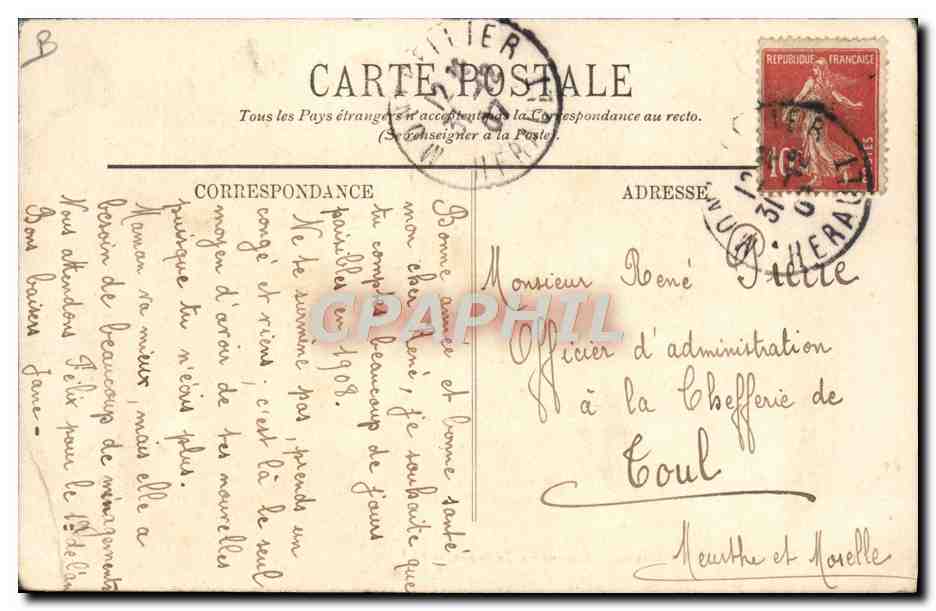 B
CARTE POSTALE
Tous les Pays étrangers n'acceptent pas la Correspondance au recto.
(Se renseigner à la Poste).
REPUBLIQUE FRANÇAISE
10
POSTES
MONTPELLIER
HERAULT
12
31
07
CORRESPONDANCE
ADRESSE
Bonne année et bonne santé,
mon cher René, je souhaite que
tu comptes beaucoup de jours
paisibles en 1908.
Ne te surmène pas, prends un
congé et viens ; c'est là le seul
moyen d'avoir de tes nouvelles
puisque tu n'écris plus.
Maman va mieux, mais elle a
besoin de beaucoup de ménagements
Nous attendons Félix pour le 1er de l'an
Bons baisers Jane -
Monsieur René Pierre
Officier d'administration
à la Chefferie de
Toul
Meurthe et Moselle
CPAPHIL